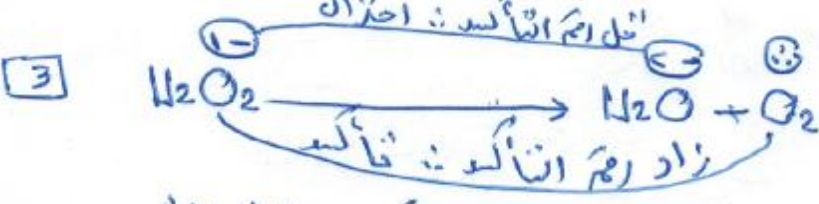 قل رقم التأكسد ∴ اختزال
1- 2- 0
3 H2O2 → H2O + O2
زاد رقم التأكسد ∴ تأكسد